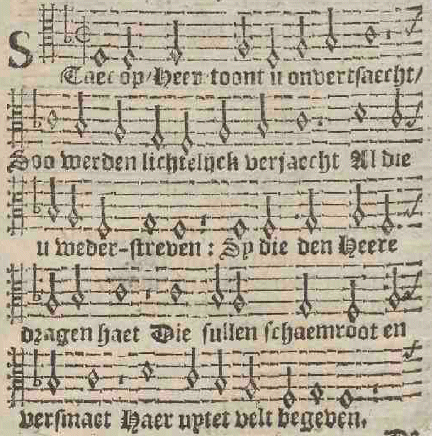 Staet op/Heer toont u onvertsaecht/
Soo werden lichtelijck verjaecht Al die
u weder-streven : Sy die den Heere
dragen haet Die sullen schaemroot en
versmaet Haer uytet velt begeven.